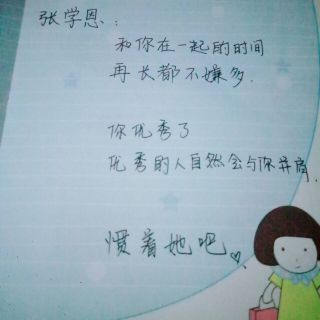 张学恩：
和你在一起的时间
再长都不嫌多.
你优秀了
优秀的人自然会与你并肩.
惯着她吧